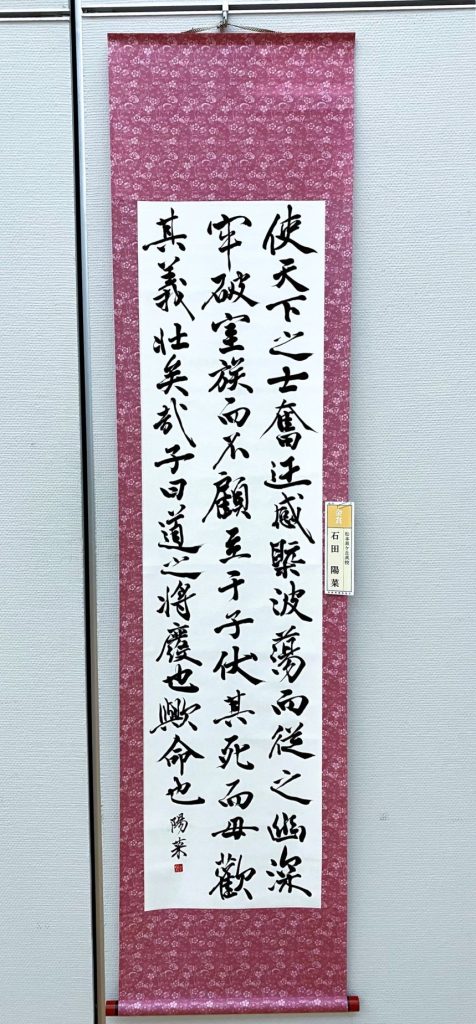 使天下之士奮迅感槩波蕩而從之幽深
牢破室族而不顧至于子伏其死而母歡
其義壯矣哉子曰道之將廢也歟命也
陽菜
金賞
石田 陽菜